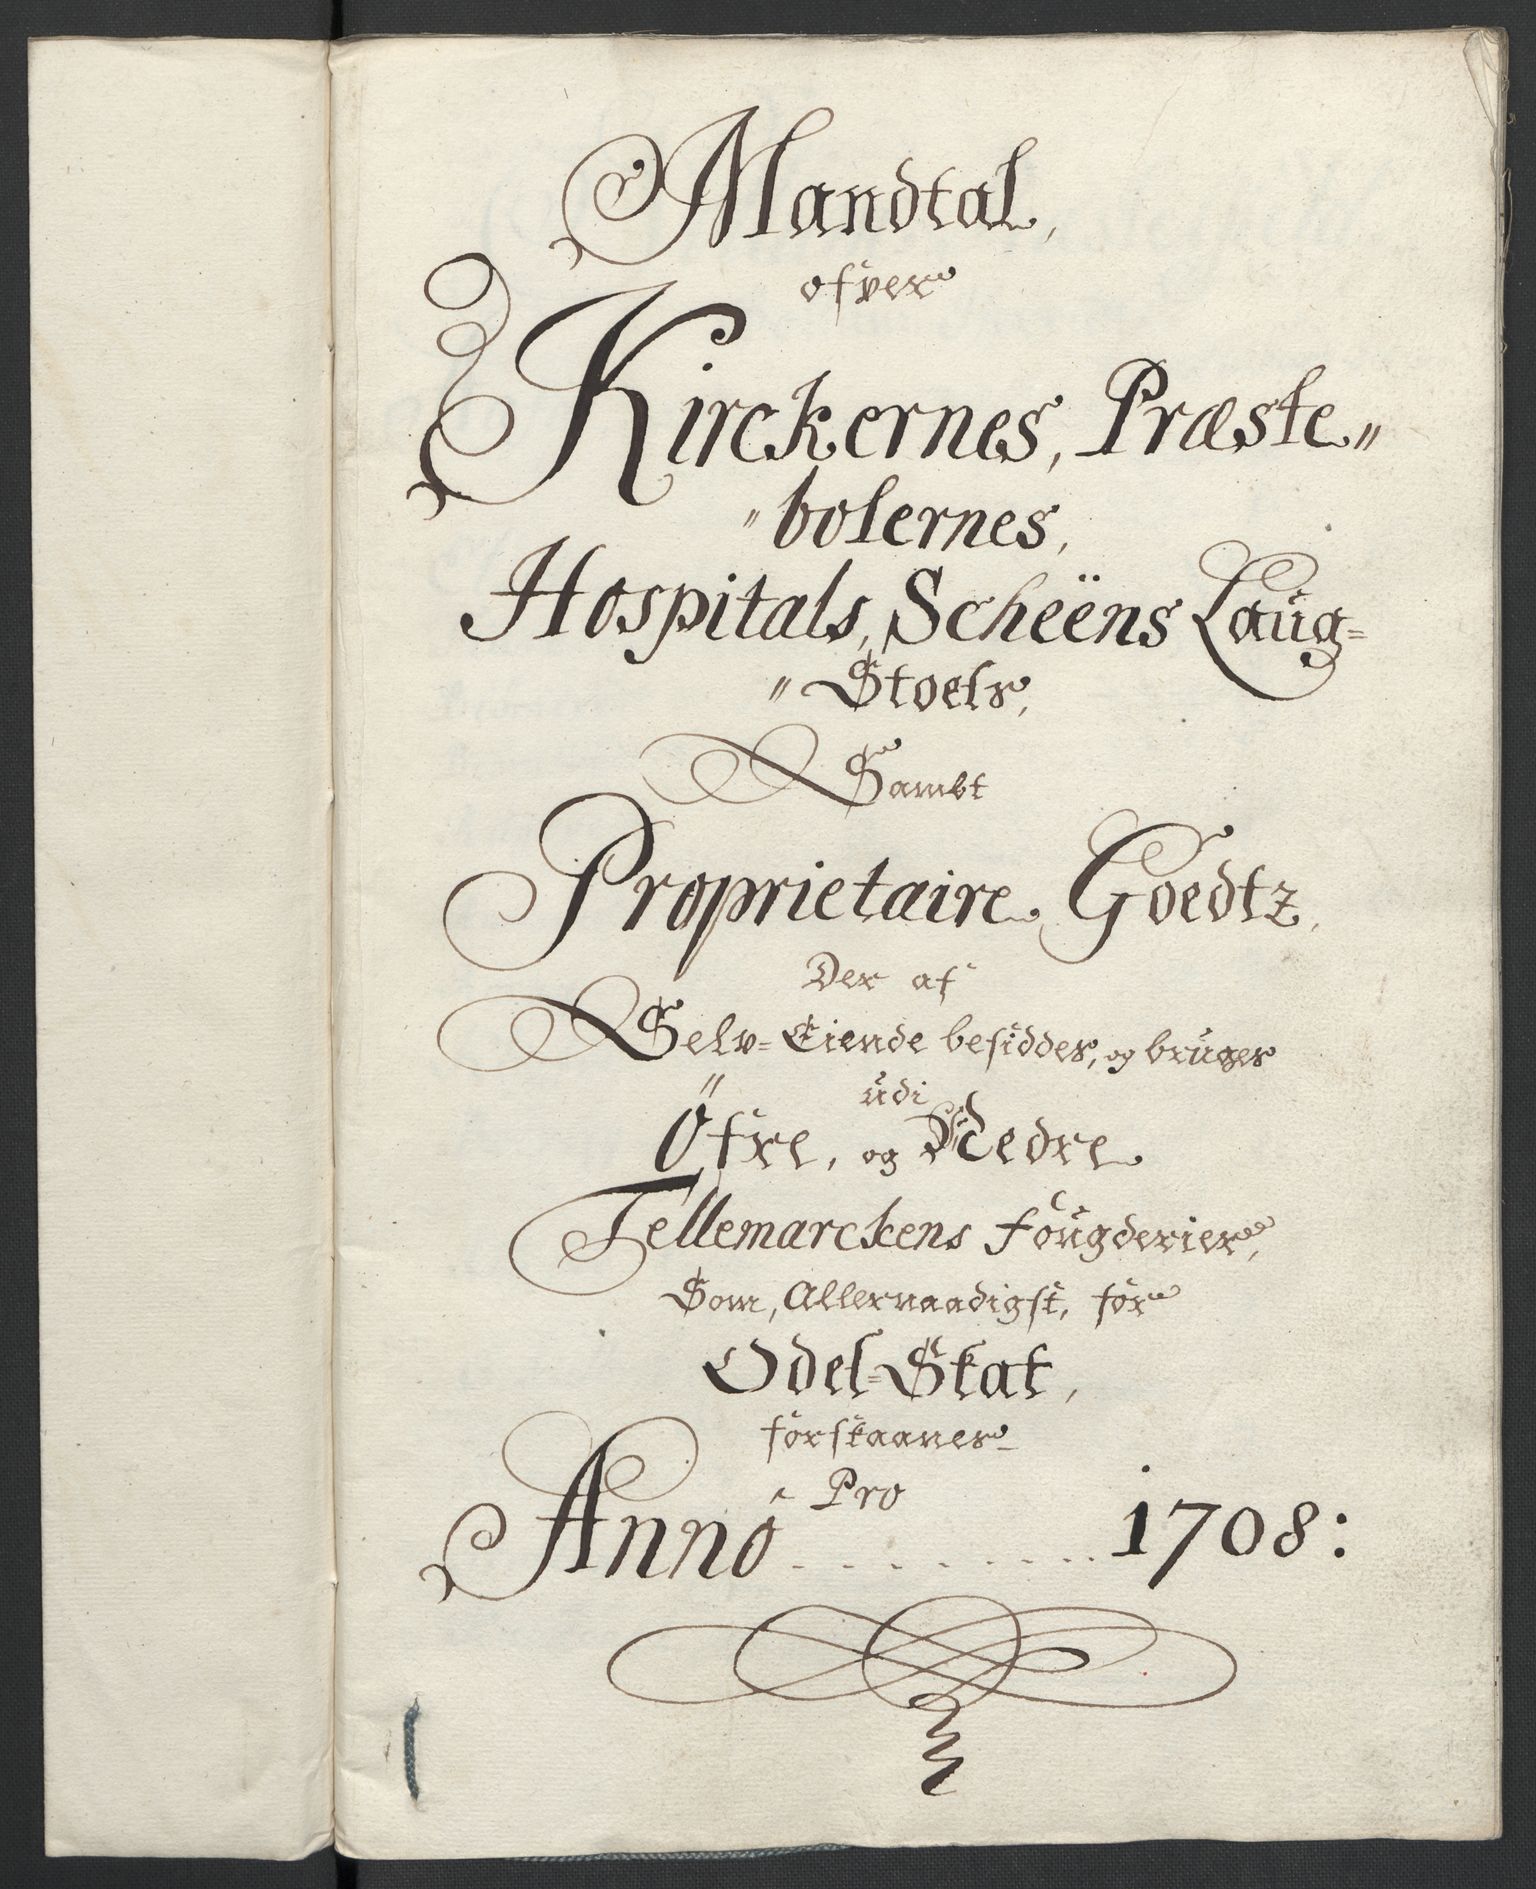 Mandtal,
ofver
Kirckernes, Præste〃
〃bolernes,
Hospitals, Scheëns Laug=
〃Stoels,
Sambt
Proprietaire Goedtz,
Der af
Selv=Eiende besiddes, og bruges
udi
Öfre, og Nedre
Tellemarckens fougderier,
Som, Allernaadigst, for
Odel=Skat,
forskaanes
Pro
Anno ......... 1708: